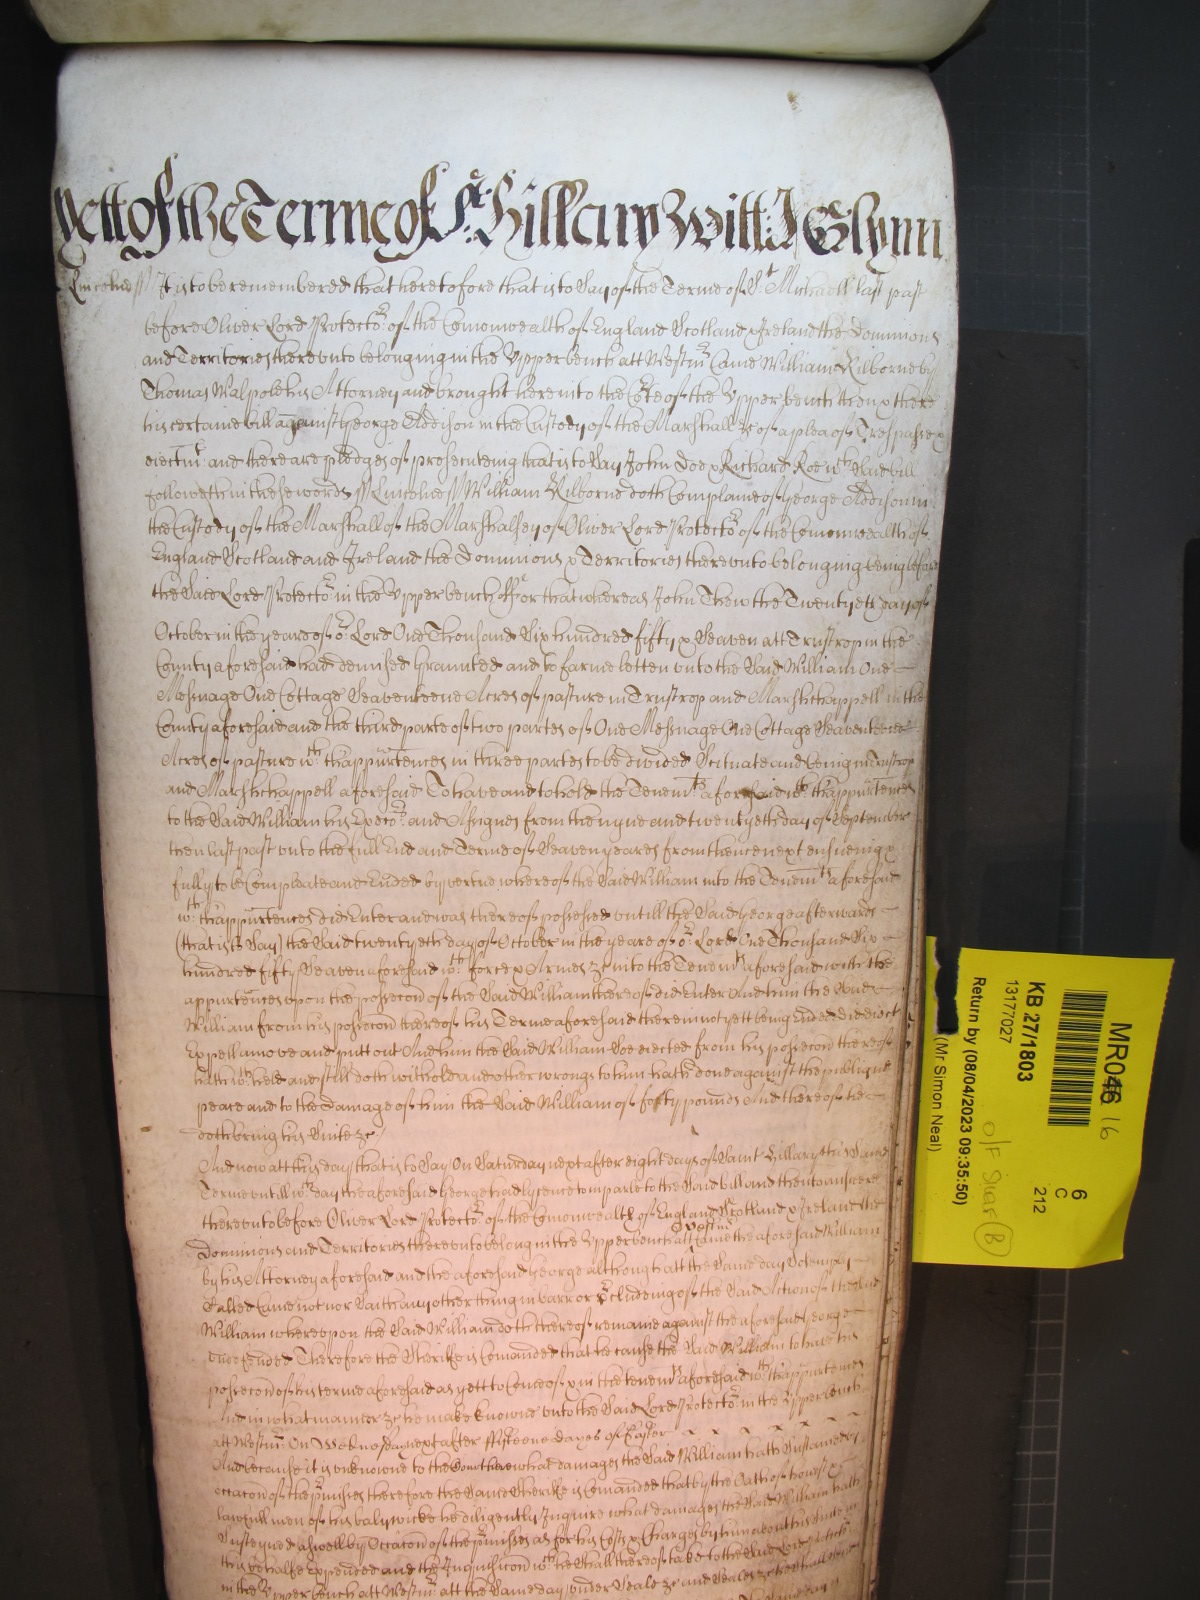 yett of the Terme of St: Hillary Witt: J Glynn
Lincolne ss It is to be remembred that heretofore that is to Say of the Terme of St Michaell last past
before Oliver Lord Protector of the Comonwealth of England Scotland & Ireland the Dominions
and Territories therevnto belonging in the Vpper bench att Westmr Came William Kilborne by
Thomas Walpole his Attorney and brought here into the Corte of the Vpper bench then & there
his certaine bill against George Addison in the Custody of the Marshall &c of a plea of Trespasse &
eiectmt and there are pledges of prosecuteing that is to Say John Doe & Richard Roe wch Said bill
followeth in these words ss Lincolne ss William Kilborne doth Complaine of George Addison in
the Custody of the Marshall of the Marshalsey of Oliver Lord Protector of the Comonwealth of
England Scotland and Ireland the Dominions & Territories therevnto belonging being before
the Said Lord Protector in the Vpper bench &c For that whereas John Thew the Twentyeth day of
October in the yeare of or Lord One Thousand Six hundred fifty & Seaven att Trustrop in the
County aforesaid had demised Graunted and to farme letten vnto the Said William One
Messuage One Cottage Seaventeene Acres of pasture in Trustrop and Marshchappell in the
County aforesaid and the third parte of two partes of One Messuage One Cottage Seaventeene
Acres of pasture wth thappurtences in three partes to be divided Scituate and being in Trustrop
and Marshchappell aforesaid To have and to hold the Tenemts aforesaid wth thappurtences
to the Said William his Execors and Assignes from the nyne and twentyeth day of September
then last past vnto the full End and Terme of Seaven yeares from thence next ensueing &
fully to be Compleate and Ended by vertue whereof the Said William into the Tenemts aforesaid
wth thappurtences did Enter and was thereof possessed vntill the Said George afterwards
(that is to Say) the Said twentyeth day of October in the yeare of or Lord One Thousand Six
hundred fifty Seaven aforesaid wth force & Armes &c into the Tenemts aforesaid with the
appurtences vpon the possecon of the Said William thereof did Enter And him the Said
William from his possecon thereof his Terme aforesaid therein not yett being Ended did eiect
Expell amove and putt out And him the Said William Soe eiected from his possecon thereof
hath wthheld and still doth withold and other wrongs to him hath done against the publique
peace and to the damage of him the Said William of forty pounds And thereof he
doth bring his Suite &c
And now att this day that is to Say On Saturday next after eight dayes of Saint Hillary this Same
Terme vntill wch day the aforesaid George had lycence to imparle to the Said bill and then to answere
therevnto before Oliver Lord Protector of the Comonwealth of England Scotland & Ireland the
Dominions and Territories therevnto belonging in the Vpper bench att Westmr Came the aforesaid William
by his Attorney aforesaid and the aforesaid George although att the Same day Solemply
Called Came not nor Saith any other thing in barr or pcludeing of the Said Action of the Said
William wherevpon the Said William doth thereof remaine against the aforesaid George
vndefended Therefore the Sheriffe is Comanded that he cause the Said William to have his
possecon of his terme aforesaid as yett to Come of & in the tenemts aforesaid wth thappurtences
And in what manner &c he make knowne vnto the Said Lord Protector in the Vpper bench
att Westmr On Wednesday next after Fifteene dayes of Easter
And because it is vnknowne to the Court here what damages the Said William hath Susteined by
occacon of the pmisses therefore the Same Sheriffe is Comanded that by the Oath of honest &
lawfull men of his balywicke he diligently Inquire what damages the Said William hath
Susteyned aswell by Occacon of the pmisses as for his Costs & Charges by him about his Suite in
this behalfe Expended and the Inquisicon wch he Shall thereof take to the Said Lord Protector
in the Vpper bench att Westmr att the Same day vnder Seale &c and Seales &c
MR046 16
KB 27/1803
13177027
6
C
212
Return by (08/04/2023 09:35:50)
(Mr Simon Neal)
O/F Staff B